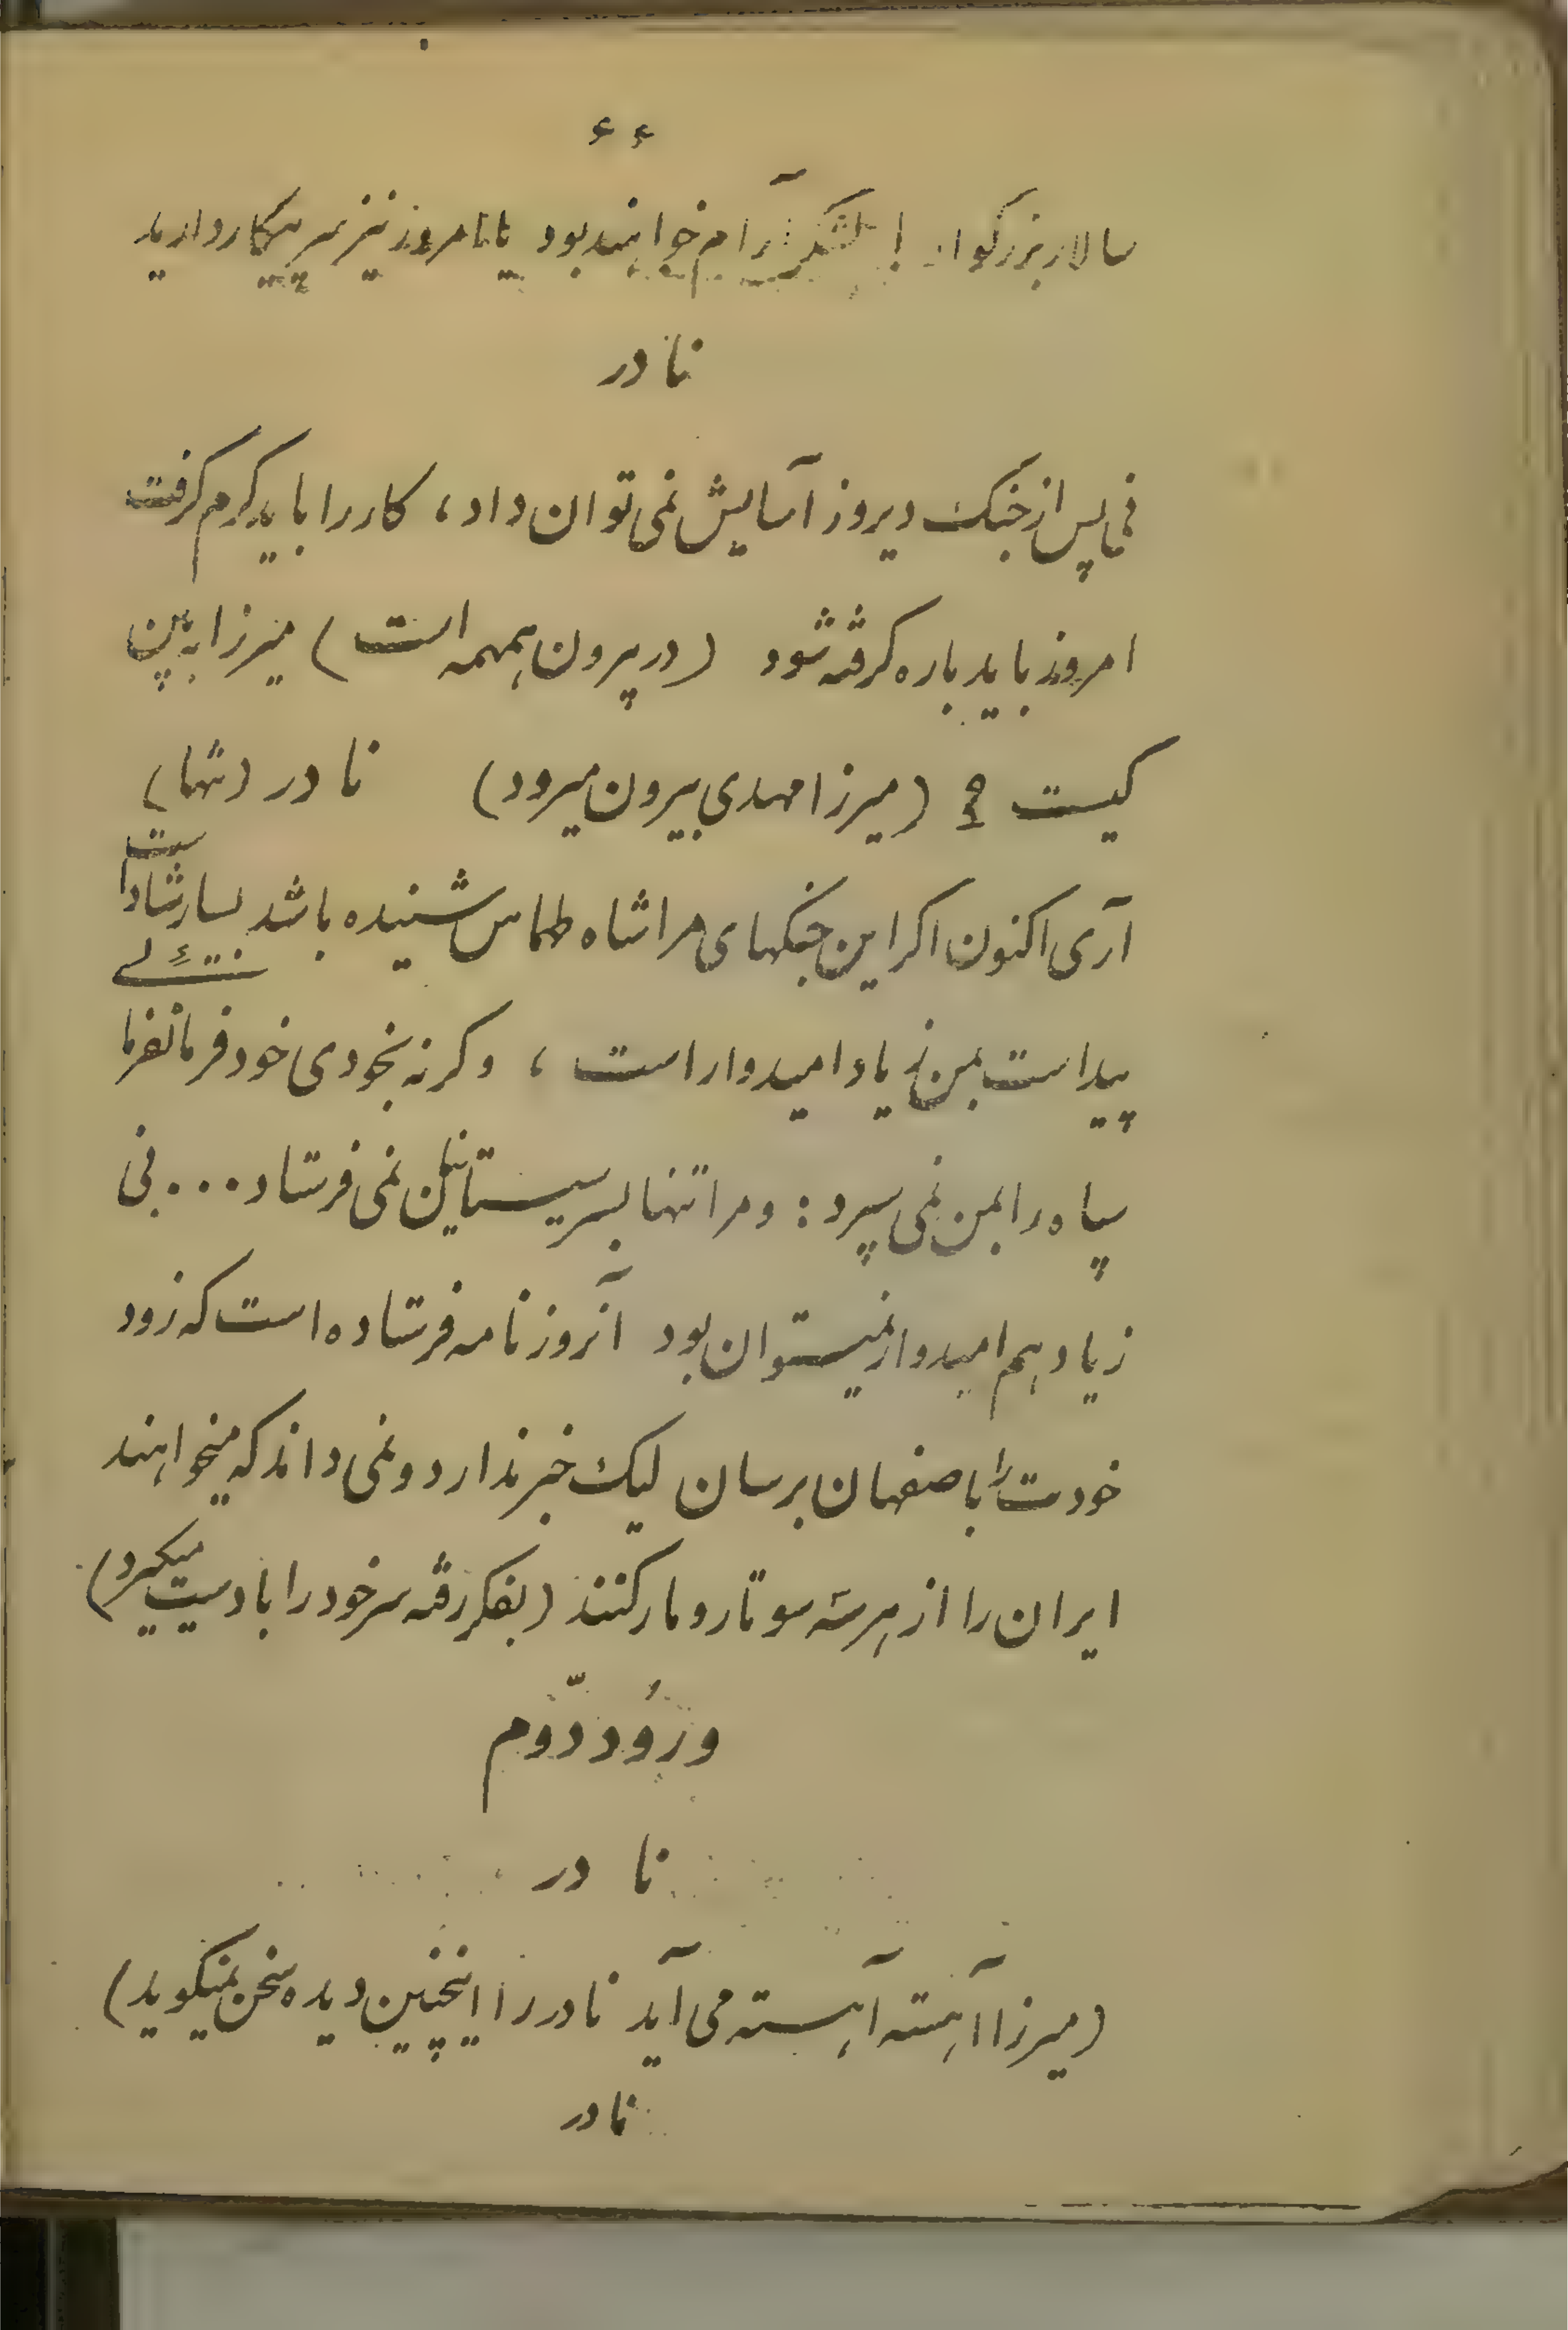 ۶۶
سالار بزرگوار ! لشکر آرام خواهند بود یا تا امروز نیز سر پیکار دارید
نادر
نی پس از جنک دیروز آسایش نمی توان داد، کار را باید کرم کرفت
امروز باید باره کرفته شود (در بیرون همهمه است) میرزا به بین
کیست ? (میرزا مهدی بیرون میرود) نادر (تنها)
آری اکنون اکر این جنکهای مرا شاه طهماس شنیده باشد بسار شاد است
پیداست بمن زیاد امیدوار است ، وکرنه بخودی خود فرمانفرمائی
سپاه را بمن نمی سپرد : و مرا تنها بسر سیستانیان نمی فرستاد . . . نی
زیاد هم امیدوار نمیستوان بود آنروز نامه فرستاده است که زود
خودت را باصفهان برسان لیک خبر ندارد و نمی داند که میخواهند
ایران را از هر سه سو تار و مار کنند (بفکر رفته سر خود را با دست میکیرد)
ورُود دوّم
نادر
(میرزا آهسته آهسته می آید نادر را اینچنین دیده سخن نمیکوید)
نادر